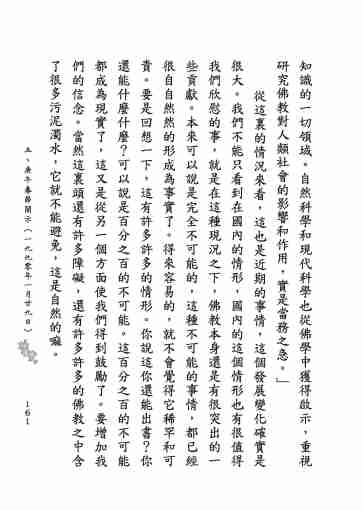 知識的一切領域。自然科學和現代科學也從佛學中獲得啟示，重視
研究佛教對人類社會的影響和作用，實是當務之急。」
從這裏的情況來看，這也是近期的事情，這個發展變化確實是
很大。我們不能只看到在國內的情形，國內的這個情形也有很值得
我們欣慰的事，就是在這種現況之下，佛教本身還是有很突出的一
些貢獻。本來可以說是完全不可能的，這種不可能的事情，都已經
很自自然然的形成為事實了。得來容易的，就不會覺得它稀罕和可
貴。要是回想一下，這有許多許多的情形。你說這你還能出書？你
還能什麼什麼？可以說是百分之百的不可能。這百分之百的不可能
都成為現實了，這又是從另一個方面使我們得到鼓勵了。要增加我
們的信念。當然這裏頭還有許多障礙，還有許多許多的佛教之中含
了很多污泥濁水，它就不能避免，這是自然的嘛。
五、庚午春節開示（一九九零年一月廿九日）
161